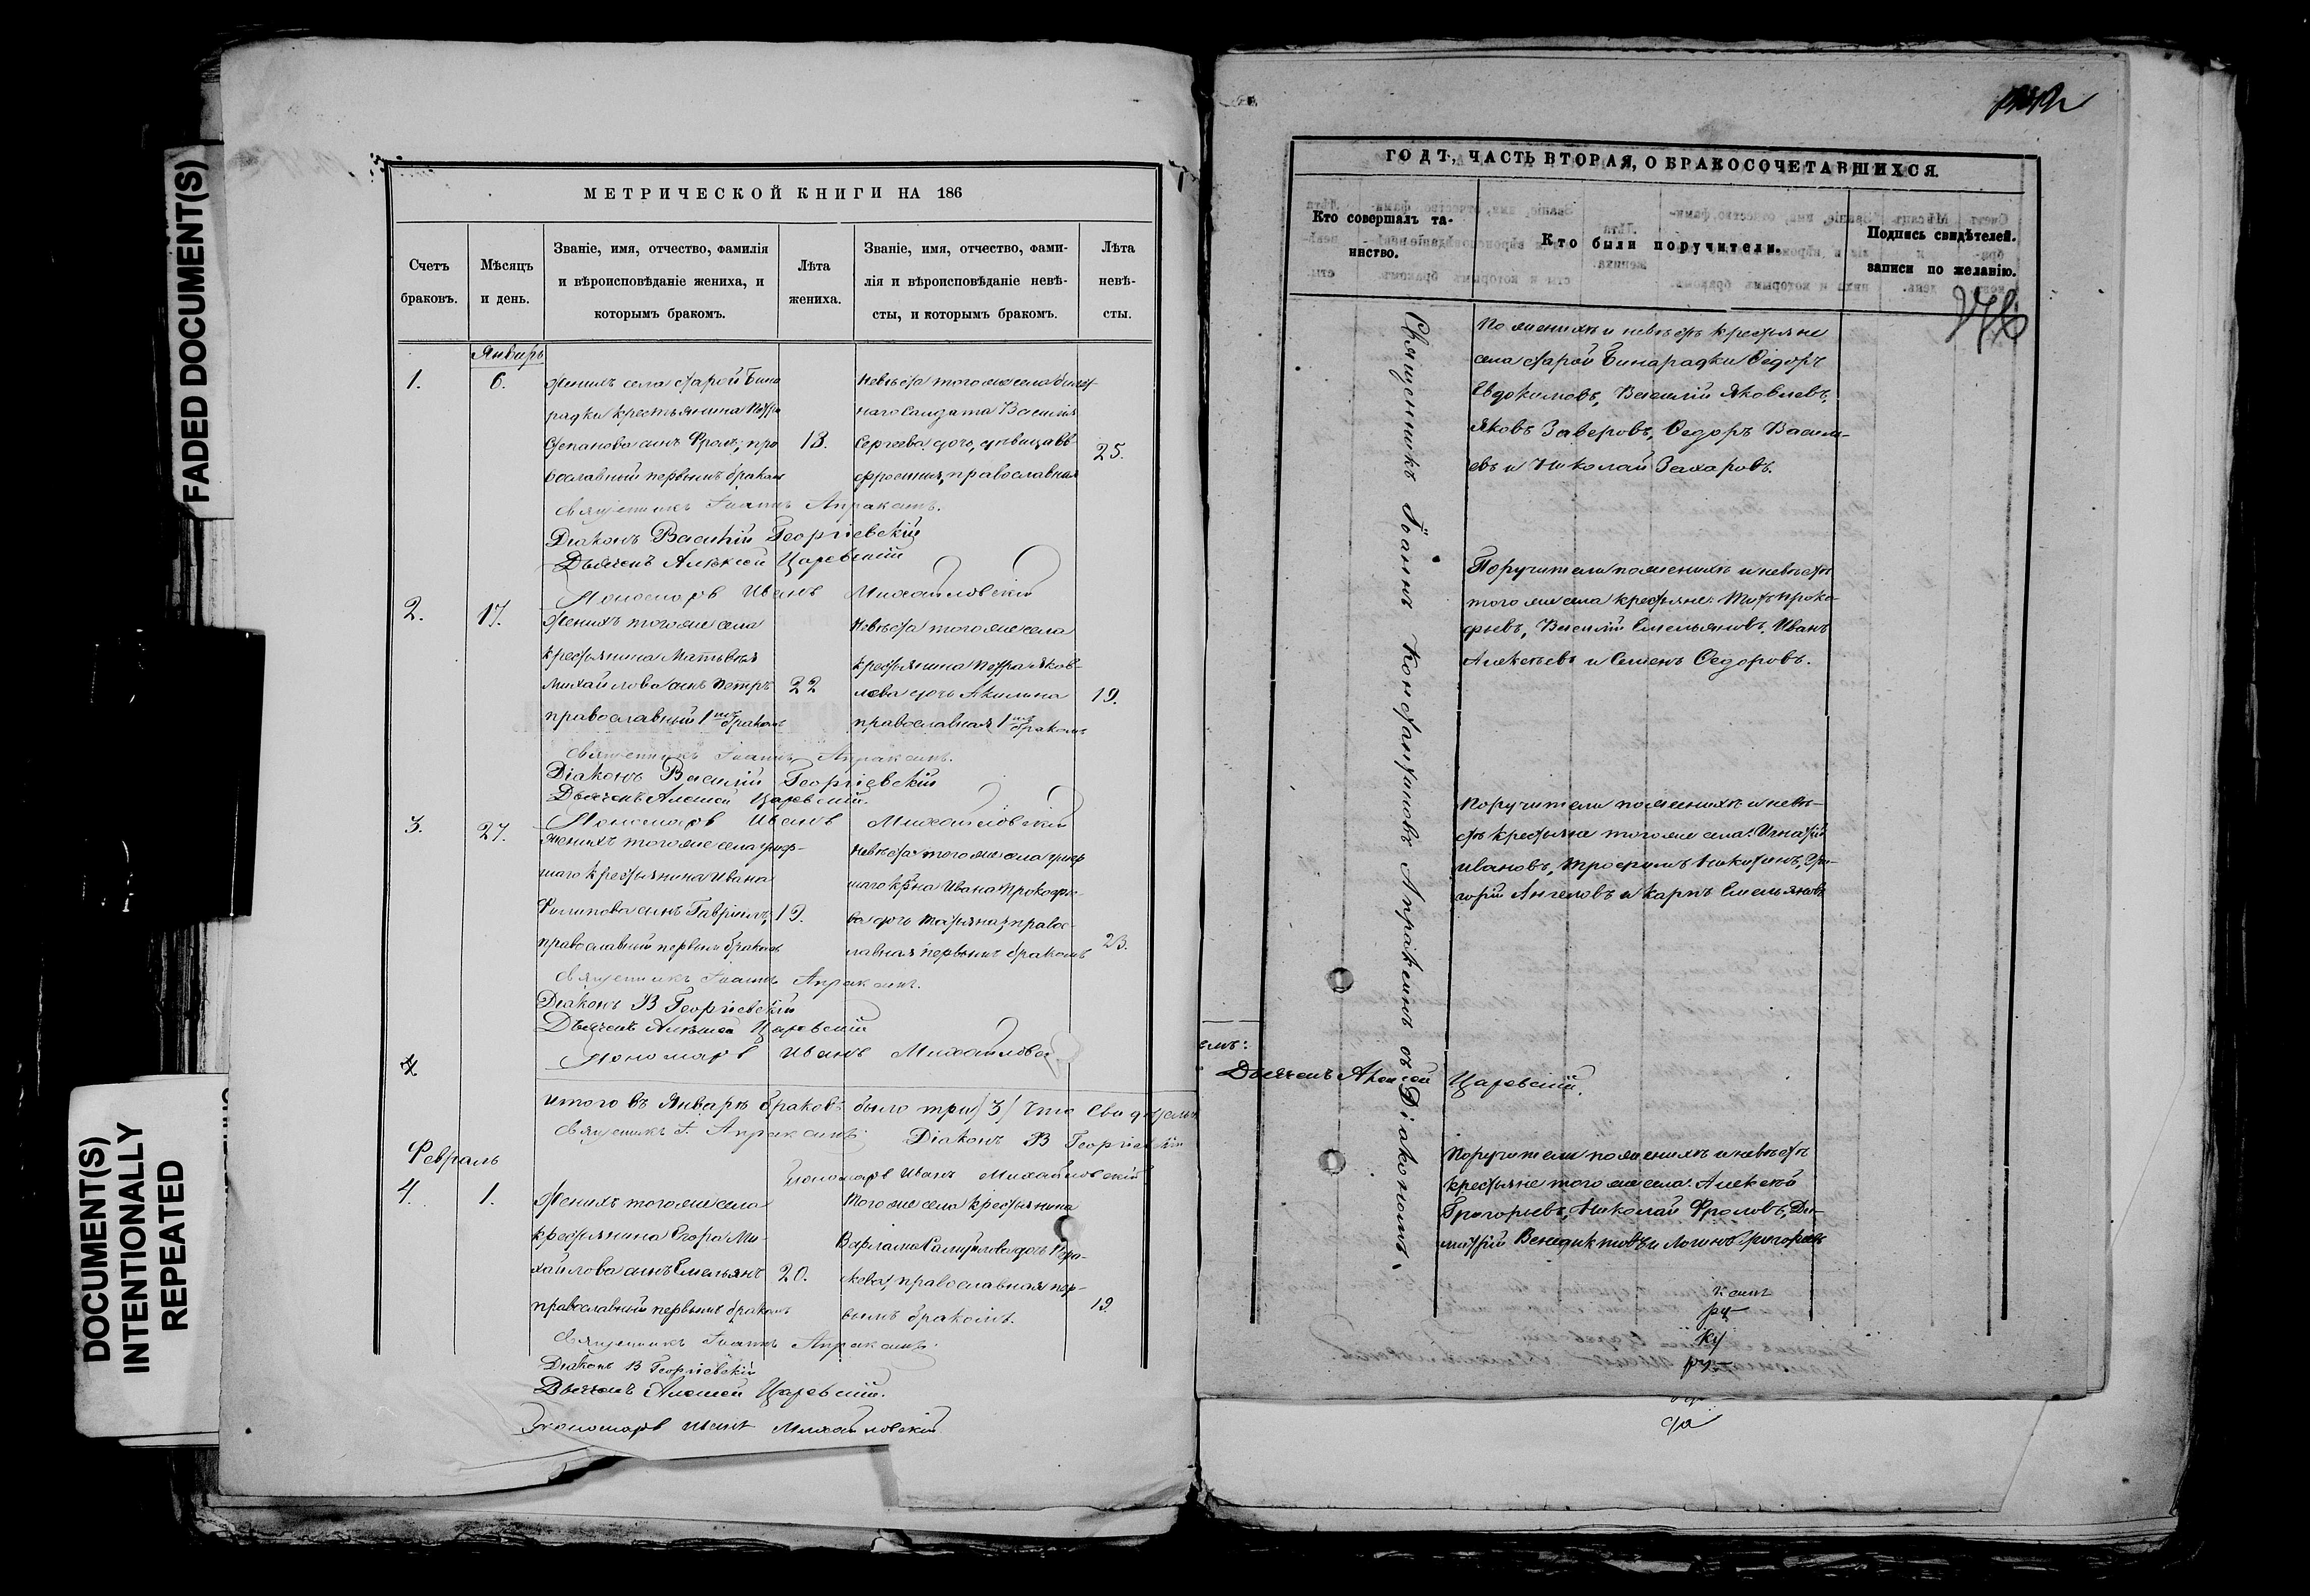 FADED DOCUMENT(S)
DOCUMENT(S)
INTENTIONALLY
REPEATED
МЕТРИЧЕСКОЙ КНИГИ НА 186
Счетъ
браковъ.
Мѣсяцъ
и день.
Званіе, имя, отчество, фамилія
и вѣроисповѣданіе жениха, и
которымъ бракомъ.
Лѣта
жениха.
Званіе, имя, отчество, фами-
лія и вѣроисповѣданіе невѣ-
сты, и которымъ бракомъ.
Лѣта
невѣ-
сты.
Январь
1.
6.
Женихъ села Старой Бина
радки крестьянина Петра
Степанова сынъ Фролъ, пра
вославный первымъ бракомъ
18.
Невѣста того же села
наго Салдата Василія
Сергеева дочь, дѣвица Ев-
фросинія, православная
25.
Священникъ Іоаннъ Апраксинъ.
Діаконъ Василій Георгіевскій
Дьячекъ Алексей Царевскій
Пономарь Иванъ Михайловскій
2.
17.
Женихъ того же села
крестьянина Матвея
Михайлова сынъ Петръ
православный 1мъ бракомъ
22
Невѣста того же села
крестьянина Петра Яков-
лева дочь Акилина
православная 1мъ бракомъ
19.
Священникъ Іоаннъ Апраксинъ.
Діаконъ Василій Георгіевскій
Дьячекъ Алексей Царевскій.
Пономарь Иванъ Михайловскій
3.
27.
Женихъ того же села умер-
шаго крестьянина Ивана
Филипова сынъ Гавріилъ,
православный первымъ бракомъ
19.
Невѣста того же села умер
шаго кр-на Ивана Прокофье-
ва дочь Татьяна, правос-
лавная первымъ бракомъ
23.
Священникъ Іоаннъ Апраксинъ.
Діаконъ В Георгіевскій
Дьячекъ Алексей Царевскій
Пономарь Иванъ Михайловскій
Итого въ Январѣ браковъ было три /3/ Что Свидетельс
Священникъ І. Апраксинъ. Діаконъ В Георгіевскій
Пономарь Иванъ Михайловскій
Февраль
4.
1.
Женихъ того же села
крестьянина Егора Ми-
хайлова сынъ Емельянъ
православный первымъ бракомъ
20.
Того же села крестьянина
Варлама Самуйлова дочь
православная пер-
вымъ бракомъ.
19.
Священникъ Іоаннъ Апраксинъ.
Діаконъ В Георгіевскій
Дьячекъ Алексей Царевскій.
Пономарь Иванъ Михайловскій
ГОДЪ, ЧАСТЬ ВТОРАЯ, О БРАКОСОЧЕТАВШИХСЯ.
Кто совершалъ та-
инство.
Кто были поручители.
Подпись свидѣтелей.
записи по желанію.
Священникъ Іоаннъ Константиновъ Апраксинъ съ Діакономъ.
По женихѣ и невѣстѣ крестьяне
села Старой Бинарадки Ѳедоръ
Евдокимовъ, Василій Яковлевъ,
Яковъ Заверовъ, Ѳедоръ Василь-
евъ и Николай Захаровъ.
Поручители по женихѣ и невѣстѣ
того же села крестьяне: Титъ Проко-
фьевъ, Василій Емельяновъ, Иванъ
Алексѣевъ и Семенъ Ѳедоровъ.
Поручители по женихѣ и невѣ-
стѣ крестьяне того же села: Игнатій
Ивановъ, Трофимъ Никитинъ, Гри-
горій Ангеловъ и Карпъ Емельяновъ
емъ:
Дьячекъ Алексей Царевскій.
Поручители по женихѣ и невѣстѣ
крестьяне того же села: Алексѣй
Григорьевъ, Николай Фроловъ, Ди-
митрій Венедиктовъ и Логинъ Григорьевъ